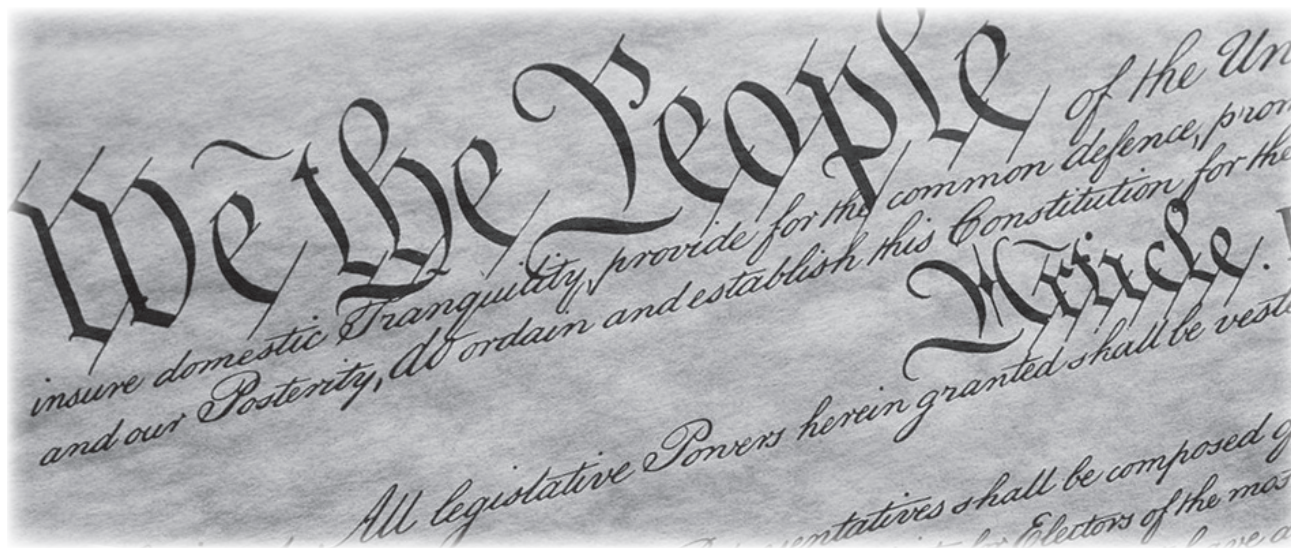 We the People of the Un
insure domestic Tranquility, provide for the common defence, prom
and our Posterity, do ordain and establish this Constitution for the
Article.
All legislative Powers herein granted shall be veste
entatives shall be composed o
for Electors of the mos
have a